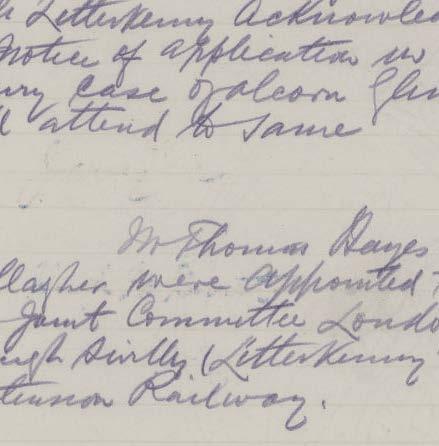 Letterkenny Acknowled
Notice of application in
ury case of Alcorn Glen
attend to same
Mr Thomas Hayes
llagher were appointed
Joint Committee Londo
ugh Swilly (Letterkenny
tension Railway.